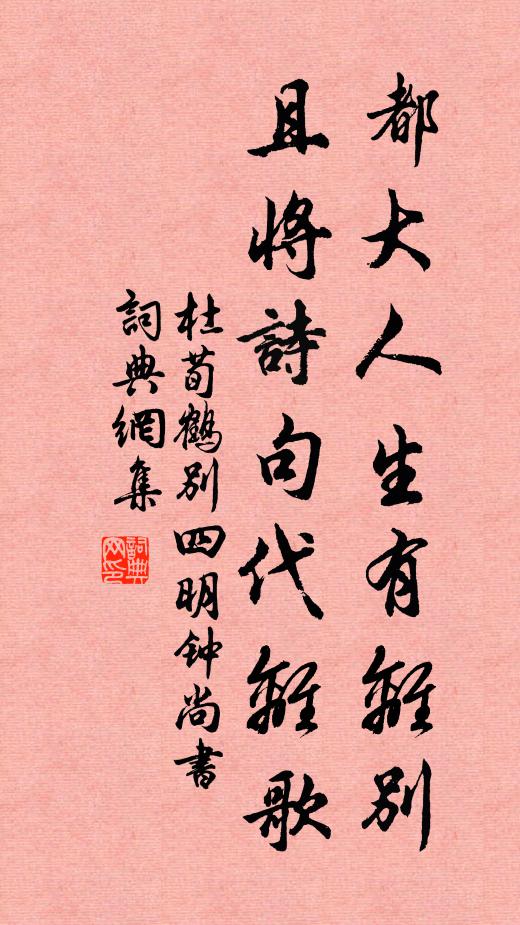 都大人生有離別
且將詩句代離歌
杜荀鶴別四明钟尚書
詞典網集
詞典網印